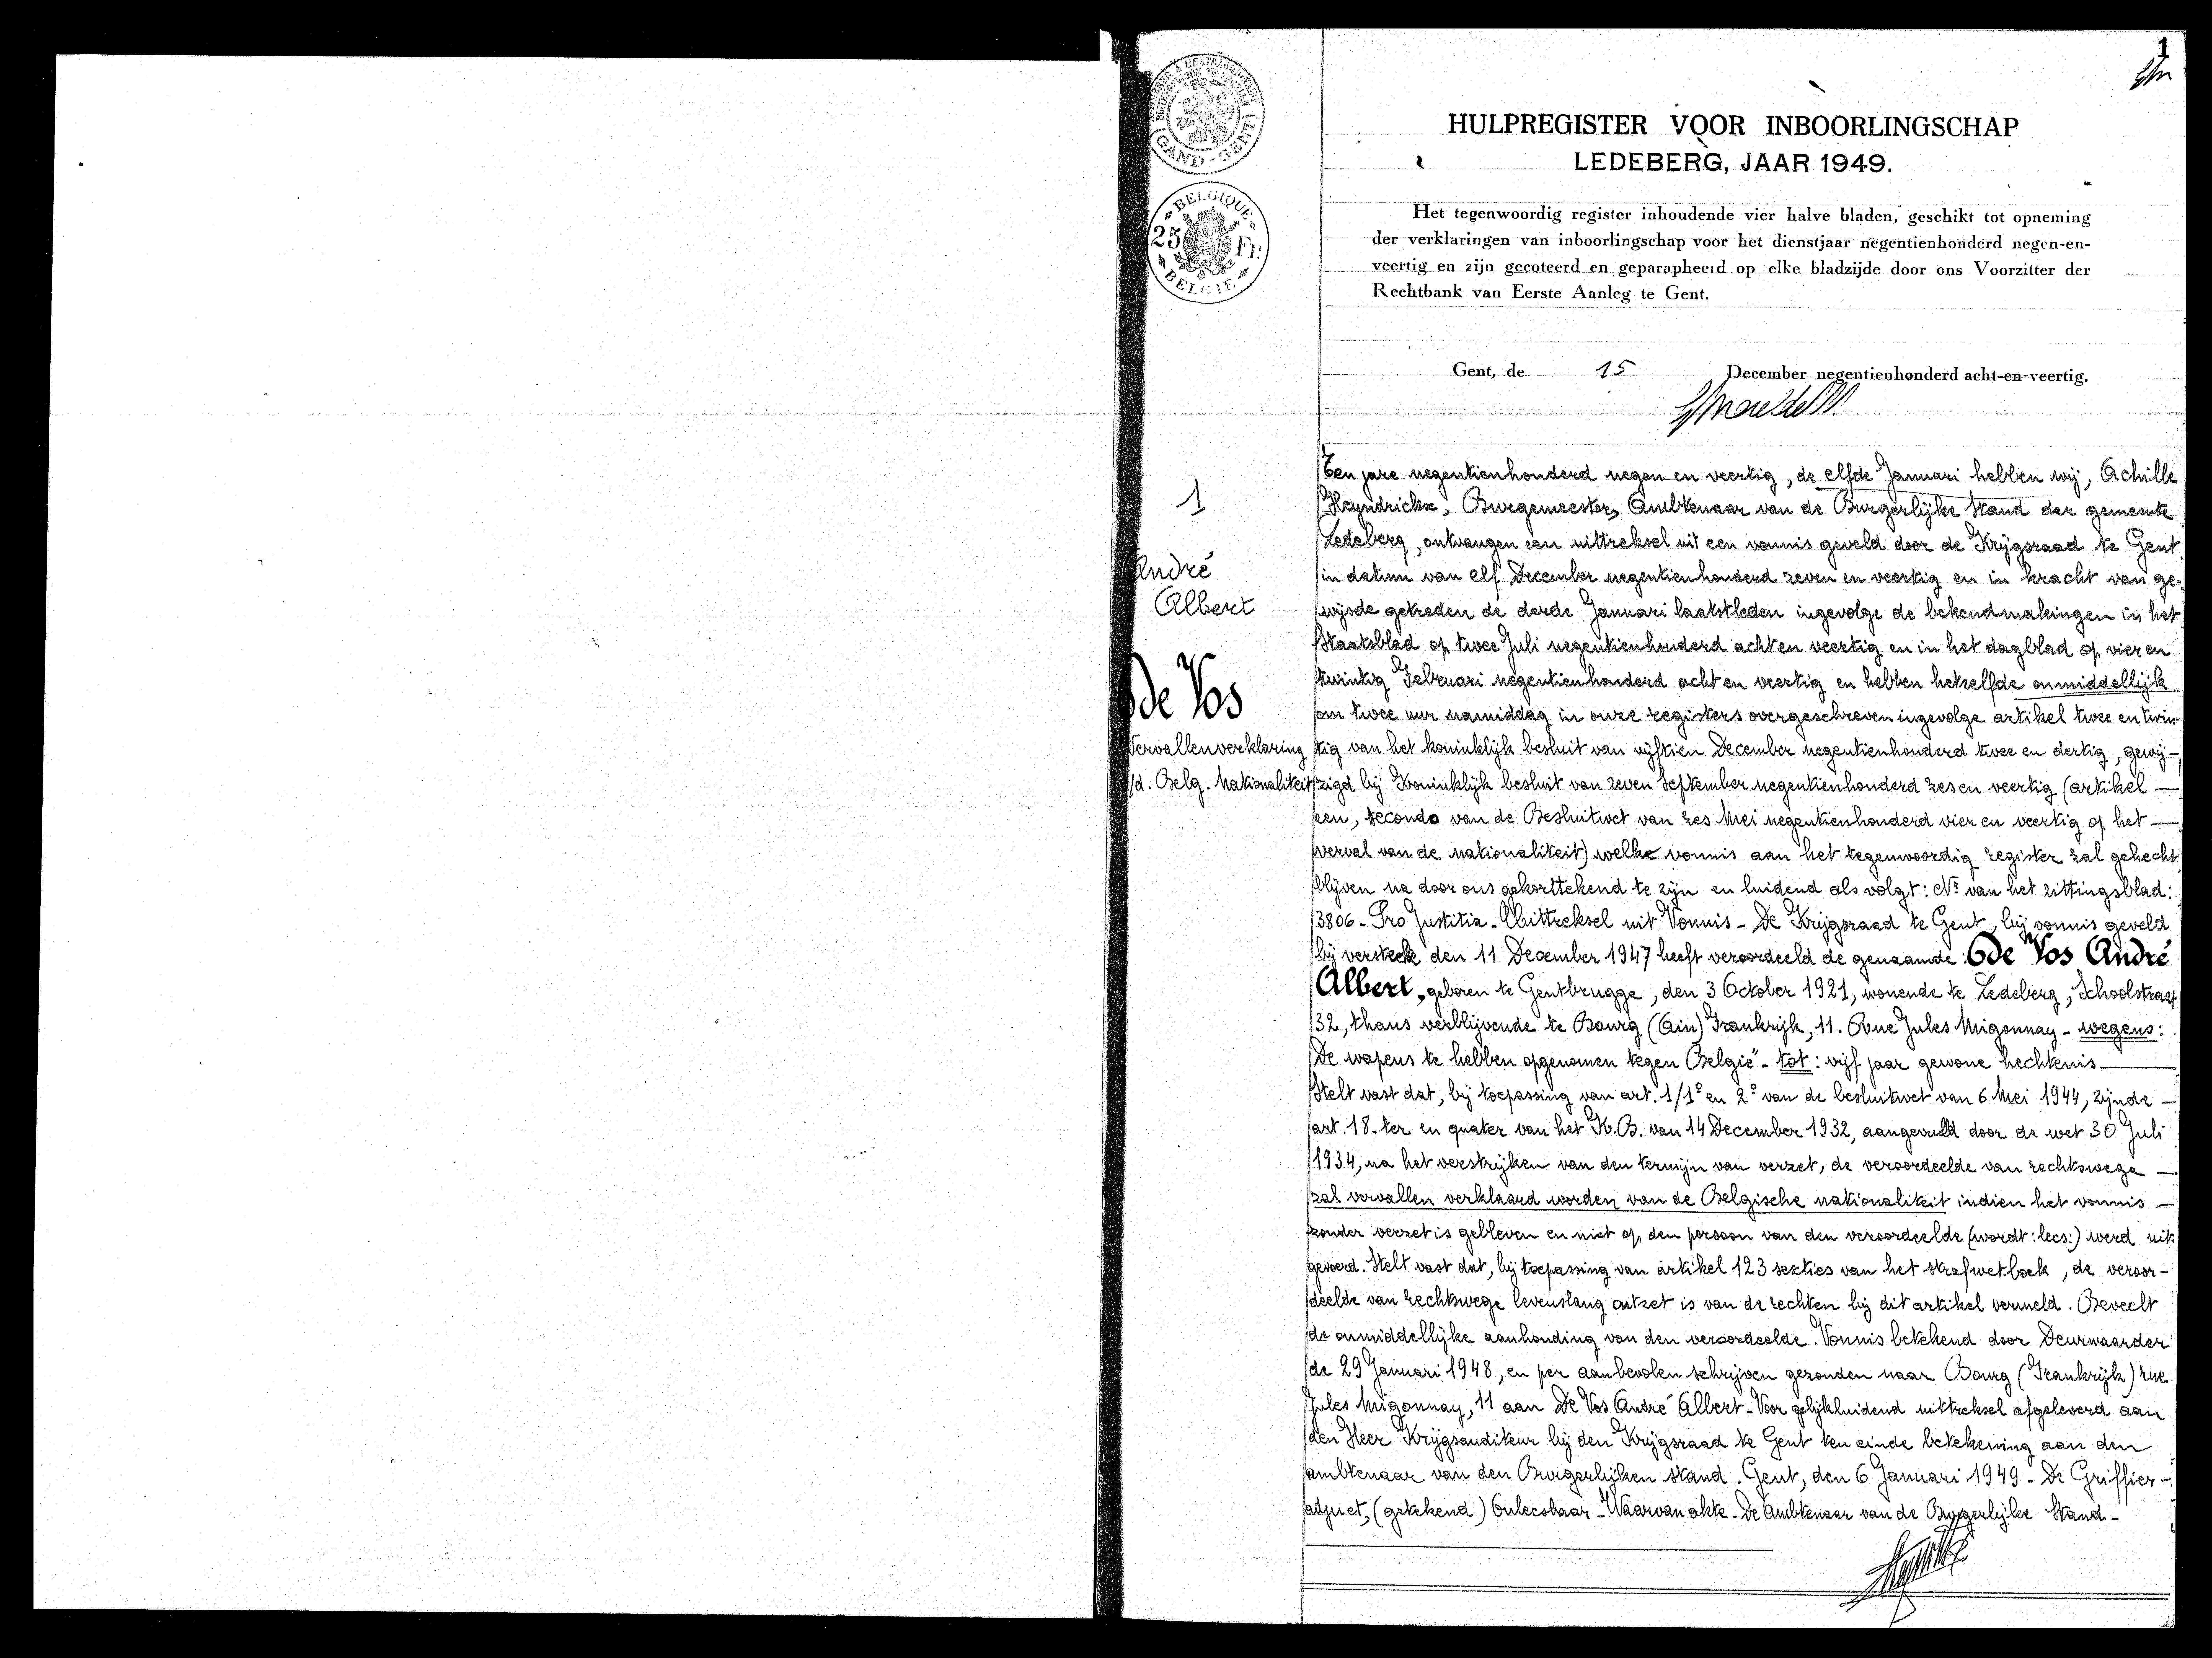 1
HULPREGISTER VOOR INBOORLINGSCHAP
LEDEBERG, JAAR 1949.
Het tegenwoordig register inhoudende vier halve bladen, geschikt tot opneming
der verklaringen van inboorlingschap voor het dienstjaar negentienhonderd negen-en-
veertig en zijn gecoteerd en geparapheerd op elke bladzijde door ons Voorzitter der
Rechtbank van Eerste Aanleg te Gent.
Gent, de 15 December negentienhonderd acht-en-veertig.
(GAND-GENT)
BELGIQUE
25 Fr.
BELGIE
1
André
Albert
de Vos
Vervallenverklaring
v/d. Belg. Nationaliteit
Ten jare negentienhonderd negen en veertig, de elfde Januari hebben wij, Achille
Heyndrickx, Burgemeester, Ambtenaar van de Burgerlijke Stand der gemeente
Ledeberg, ontvangen een uittreksel uit een vonnis geveld door de Krijgsraad te Gent
in datum van elf December negentienhonderd zeven en veertig en in kracht van ge-
wijsde getreden de derde Januari laatstleden ingevolge de bekendmakingen in het
Staatsblad op twee Juli negentienhonderd acht en veertig en in het dagblad op vier en
twintig Februari negentienhonderd acht en veertig en hebben hetzelfde onmiddellijk
om twee uur namiddag in onze registers overgeschreven ingevolge artikel twee en twin-
tig van het koninklijk besluit van vijftien December negentienhonderd twee en dertig, gewij-
zigd bij Koninklijk besluit van zeven September negentienhonderd zes en veertig (artikel —
een, secondo van de Besluitwet van zes Mei negentienhonderd vier en veertig op het —
verval van de nationaliteit) welke vonnis aan het tegenwoordig register zal gehecht
blijven na door ons gekorttekend te zijn en luidend als volgt: Nr van het zittingsblad:
3806 - Pro Justitia - Uittreksel uit Vonnis - De Krijgsraad te Gent, bij vonnis geveld
bij verstek den 11 December 1947 heeft veroordeeld de genaamde: de Vos André
Albert, geboren te Gentbrugge, den 3 October 1921, wonende te Ledeberg, Schoolstraat
32, thans verblijvende te Bourg (Ain) Frankrijk, 11. Rue Jules Migonnay - wegens:
De wapens te hebben opgenomen tegen België - tot: vijf jaar gewone hechtenis —
Stelt vast dat, bij toepassing van art. 1/1° en 2° van de besluitwet van 6 Mei 1944, zijnde —
art. 18-ter en quater van het K.B. van 14 December 1932, aangevuld door de wet 30 Juli
1934, na het verstrijken van den termijn van verzet, de veroordeelde van rechtswege —
zal vervallen verklaard worden van de Belgische nationaliteit indien het vonnis —
zonder verzet is gebleven en niet op den persoon van den veroordeelde (wordt: lees:) werd uit-
gevoerd. Stelt vast dat, bij toepassing van artikel 123 sexties van het strafwetboek, de veroor-
deelde van rechtswege levenslang ontzet is van de rechten bij dit artikel vermeld. Beveelt
de onmiddellijke aanhouding van den veroordeelde. Vonnis betekend door Deurwaarder
de 29 Januari 1948, en per aanbevolen schrijven gezonden naar Bourg (Frankrijk) rue
Jules Migonnay, 11 aan De Vos André Albert - Voor gelijkluidend uittreksel afgeleverd aan
den Heer Krijgsauditeur bij den Krijgsraad te Gent ten einde betekening aan den
ambtenaar van den Burgerlijken stand. Gent, den 6 Januari 1949 - De Griffier -
adjunct, (getekend) Onleesbaar - Waarvan akte - De Ambtenaar van de Burgerlijke Stand -